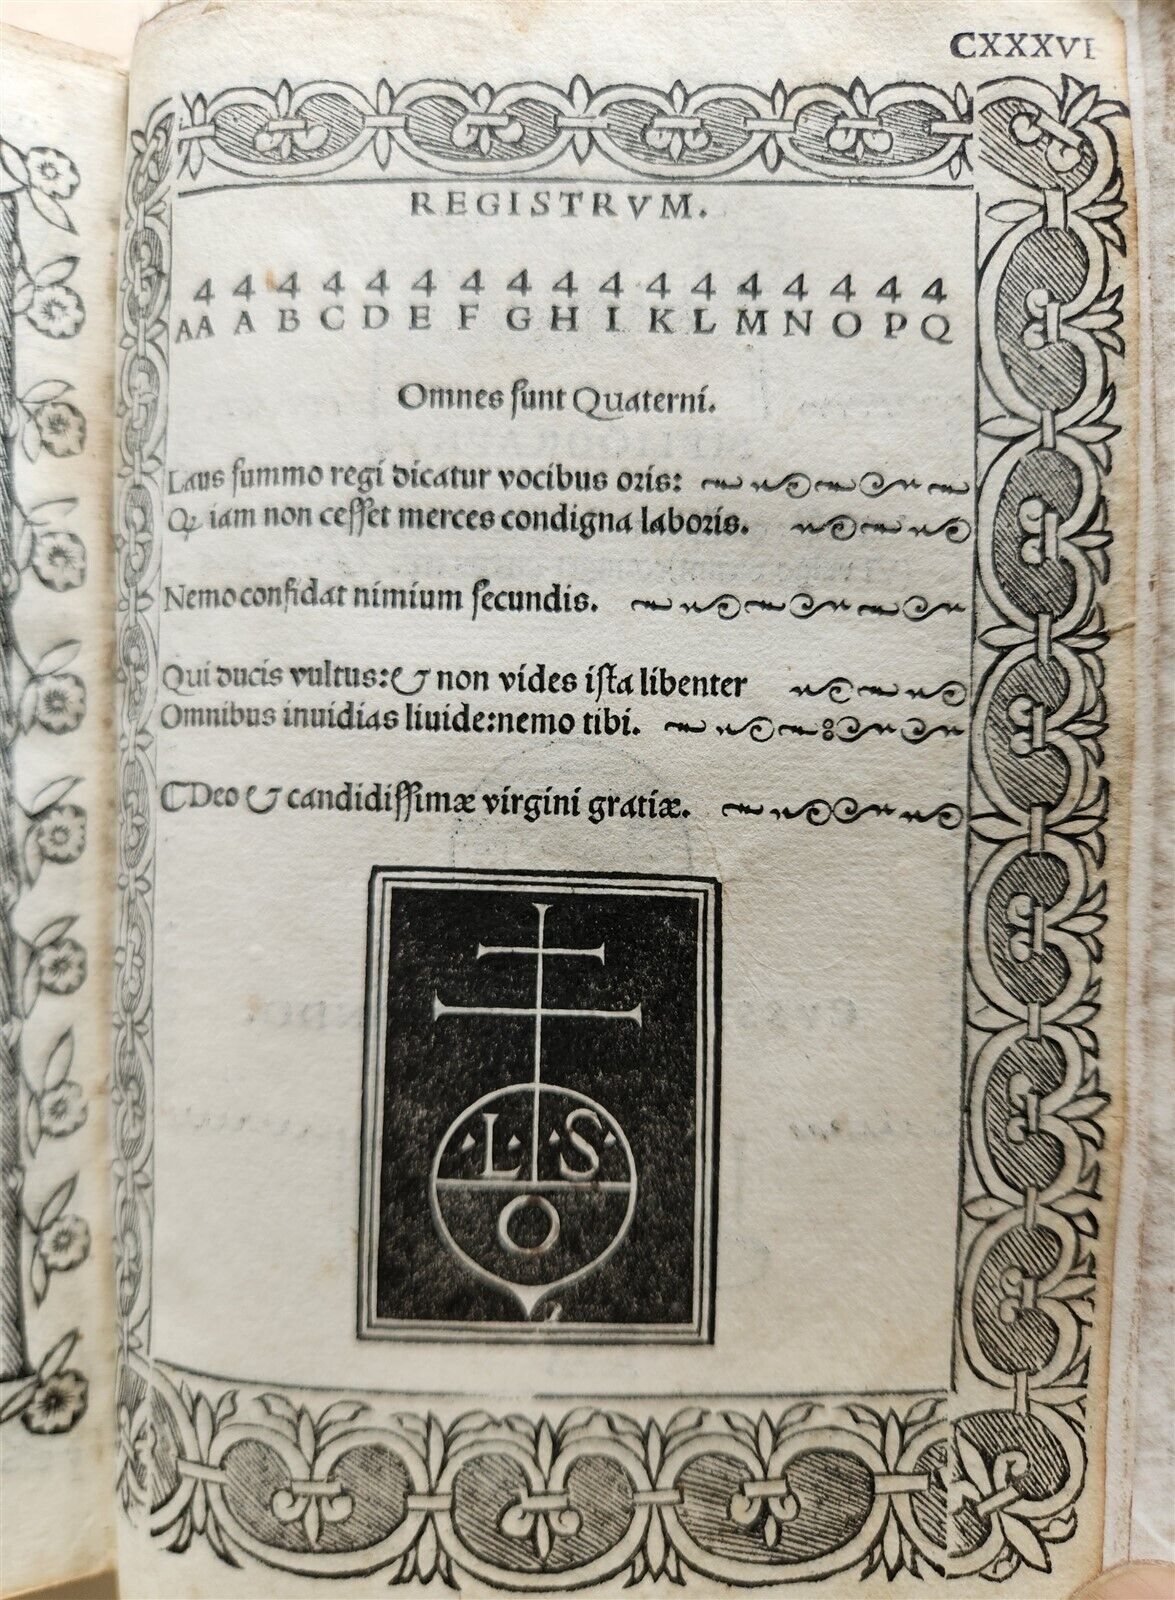 CXXXVI
REGISTRVM.
4 4 4 4 4 4 4 4 4 4 4 4 4 4 4 4 4
AA A B C D E F G H I K L M N O P Q
Omnes ſunt Quaterni.
Laus ſummo regi dicatur vocibus oris:
Q iam non ceſſet merces condigna laboris.
Nemo confidat nimium ſecundis.
Qui ducis vultus: & non vides iſta libenter
Omnibus inuidias liuide: nemo tibi.
⁋ Deo & candidiſſimæ virgini gratiæ.
·L· ·S·
O